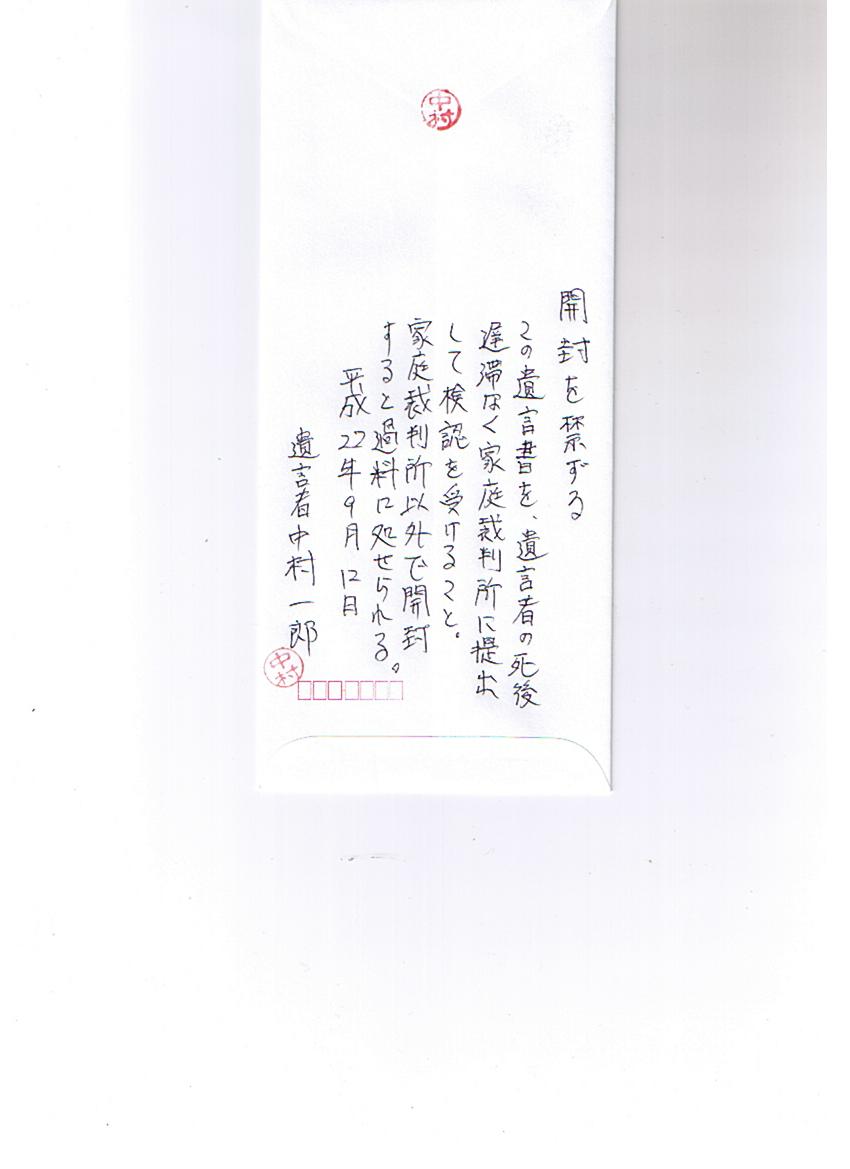 開封を禁ずる
この遺言書を、遺言者の死後
遅滞なく家庭裁判所に提出
して検認を受けること。
家庭裁判所以外で開封
すると過料に処せられる。
平成22年9月12日
遺言者中村一郎
中村
中村